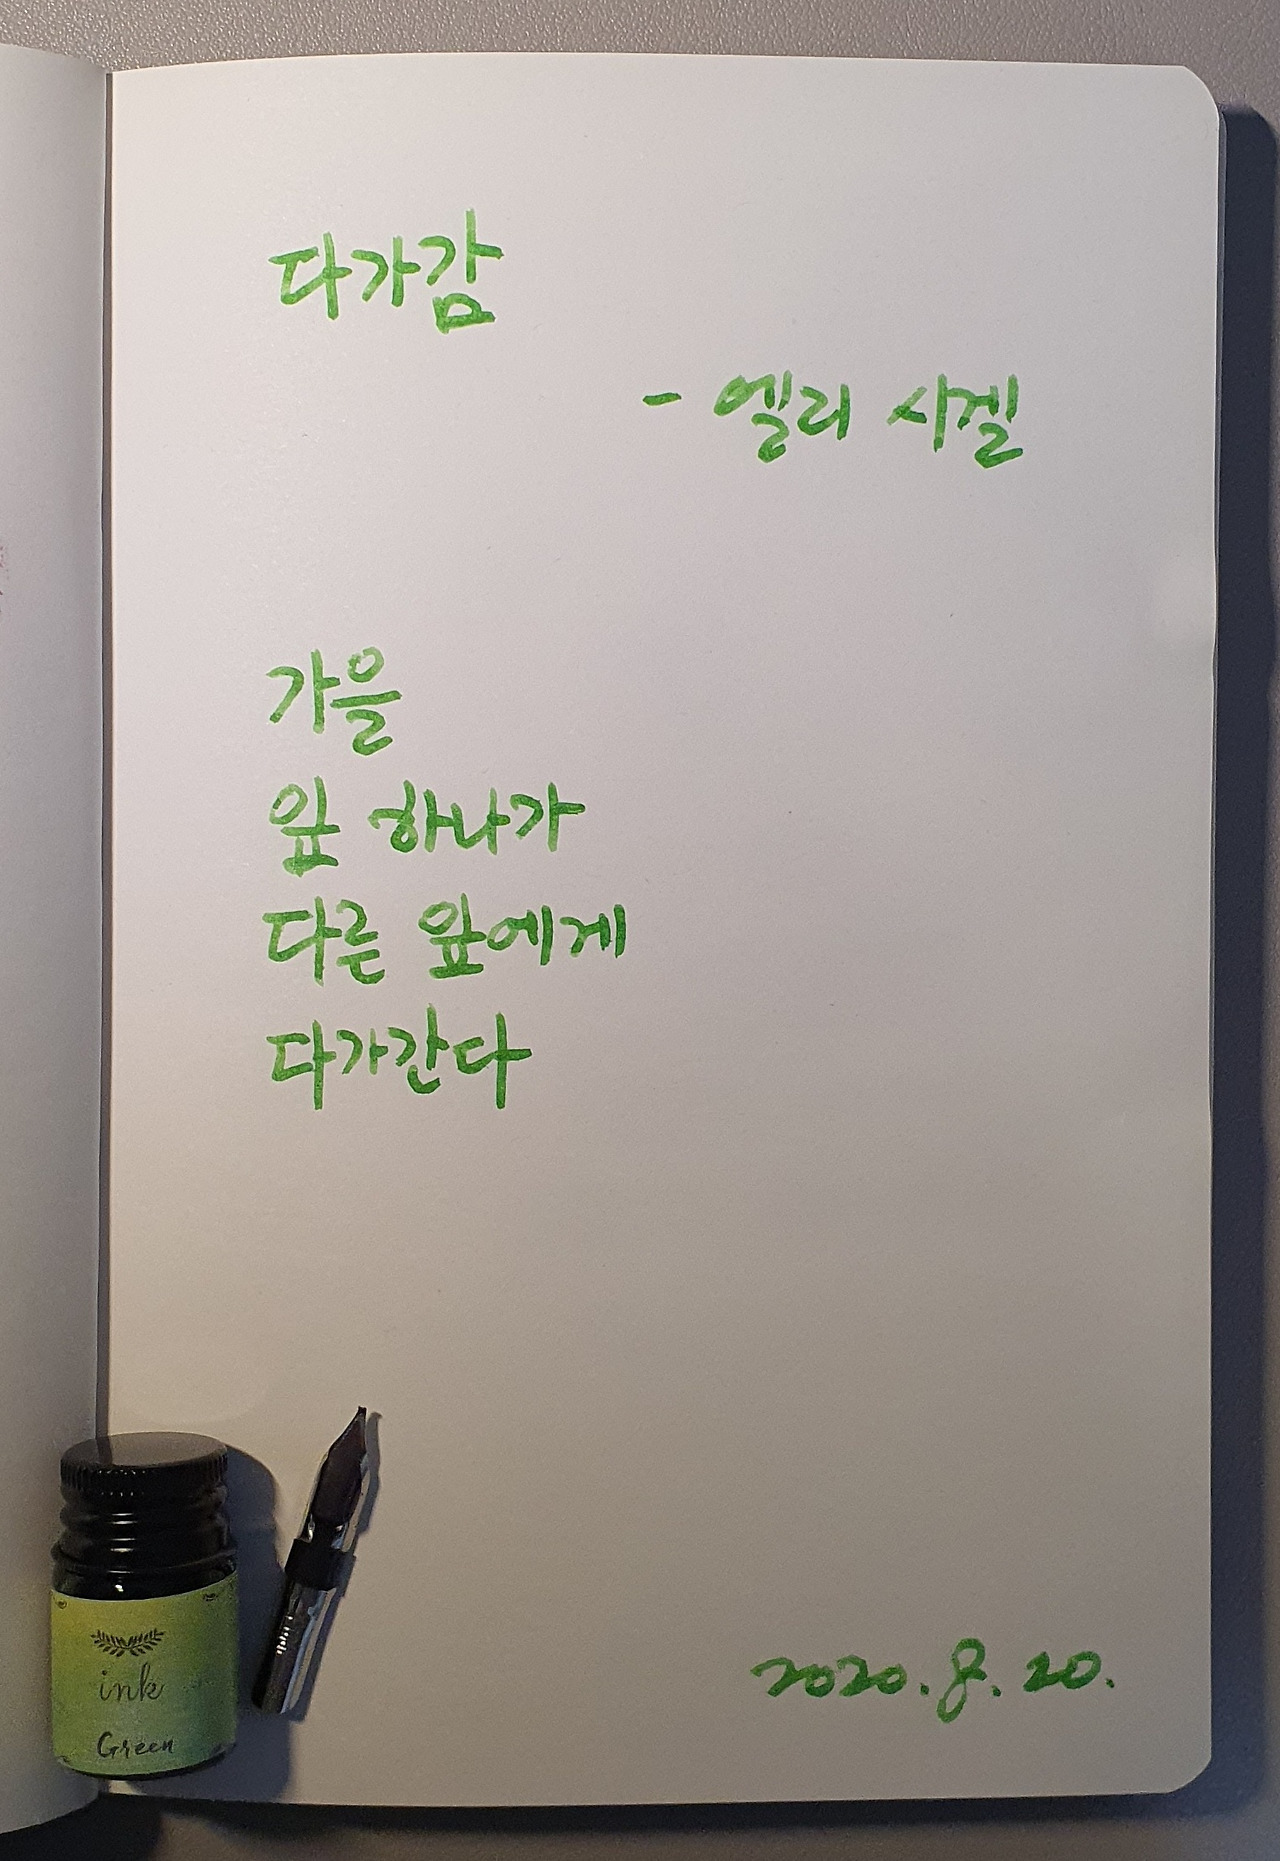 다가감
- 엘리 시겔
가을
잎 하나가
다른 잎에게
다가간다
ink
Green
2020. 8. 20.